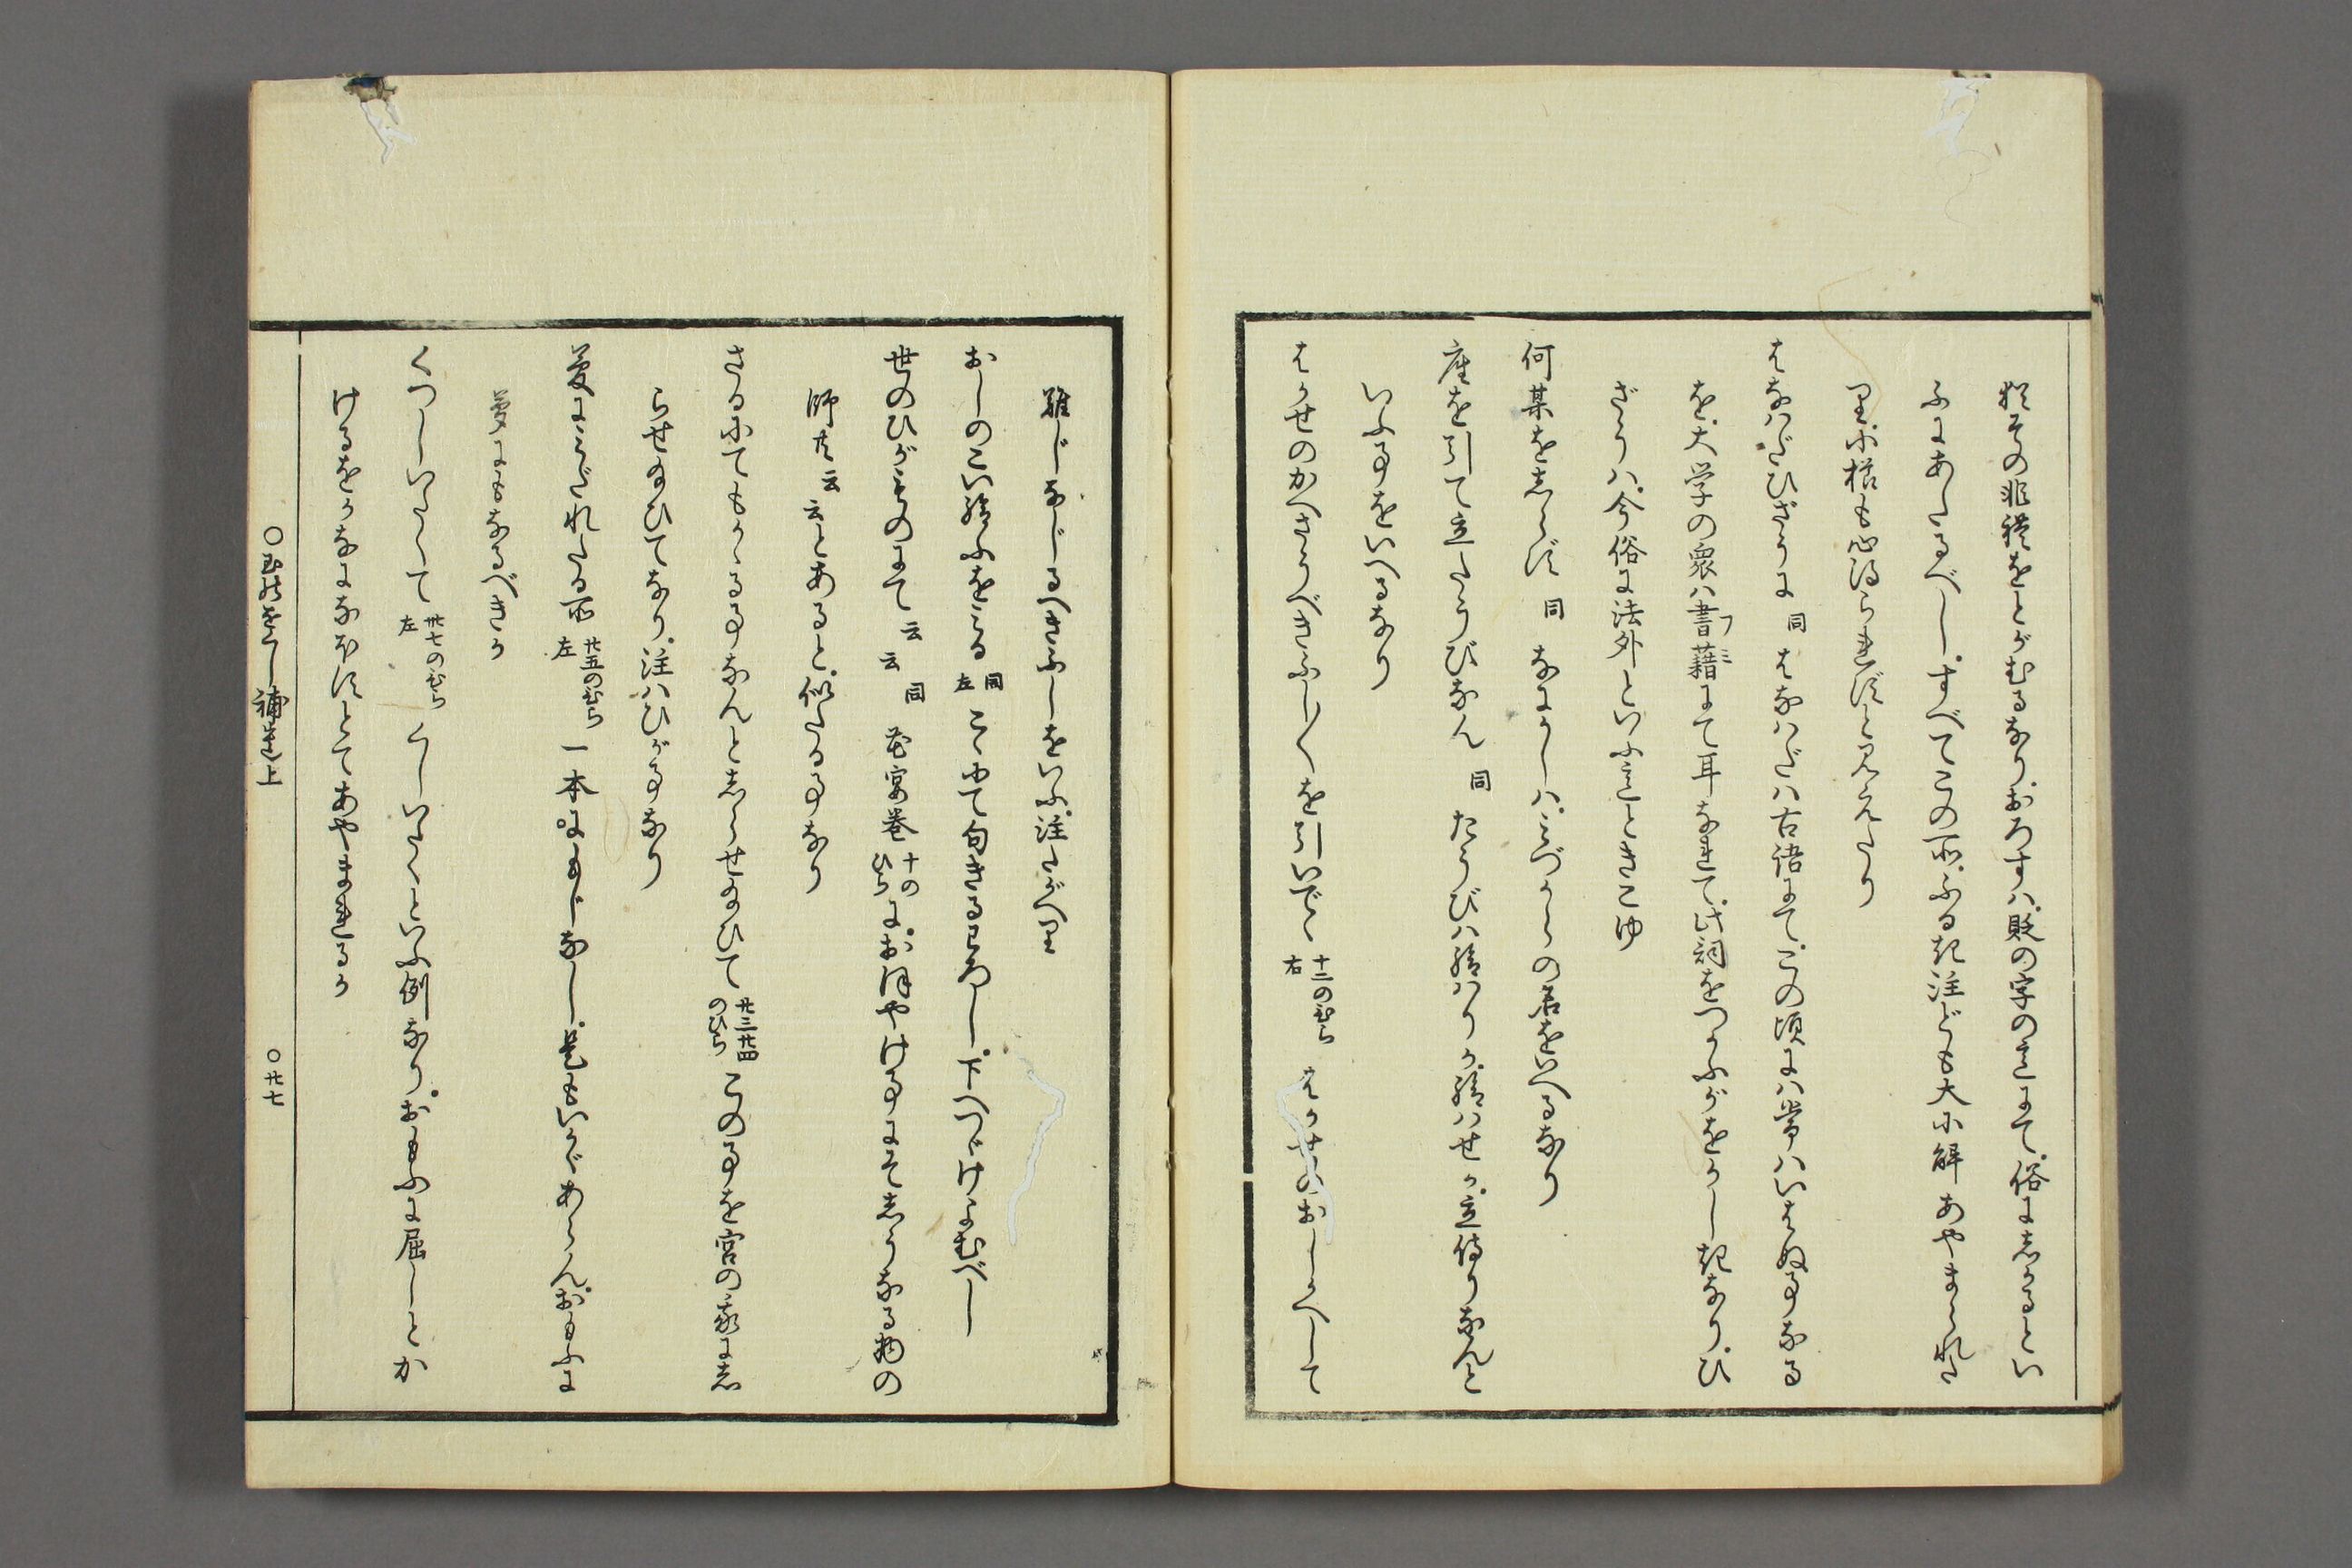 猶その非礼をとがむるなり、おろすハ、貶の字の意にて、俗にしかるとい
ふにあたるべし、すべてこの所、ふるき注ども大に解あやまられた
り、小櫛も心得られずと見えたり
はなハだひざうに 同 はなハだハ古語にて、この頃にハ常ハいはぬ事なる
を、大学の衆ハ書籍にて耳なれて、此詞をつかふがをかしきなり、ひ
フミ
ざうハ、今俗に法外といふ意ときこゆ
何某をしらず 同 なにかしハ、みづからの名をいへるなり
座を引て立たうびなん 同 たうびハ給ハりか、給ハせか、立侍りなんと
いふ事をいへるなり
はかせのかへさうべきふし〳〵を引いでゝ 十二のひら右 はかせのおしかへして
難じなじるべきふしをいふ、注たがへり
おしのごい給ふをみる 同左 こゝにて句きるわろし、下へつゞけよむべし
世のひがものにて云云 同 花宴巻 十のひら に、おほやけ事にそしうなる物の
師共云云とあると、似たる事なり
さるにてもかゝる事なんとしらせ給ひて 廿三廿四のひら この事を宮の我にし
らせ給ひてなり、注ハひが事なり
夢にみだれたる所 廿五のひら左 一本にもじなし、是もいかゞあらん、おもふに
夢にもなるべきか
くつしいたくて 卅七のひら左 くしいたくといふ例なり、おもふに屈しとか
けるをかなになほすとてあやまれるか
○玉の小くし補遺上 ○廿七